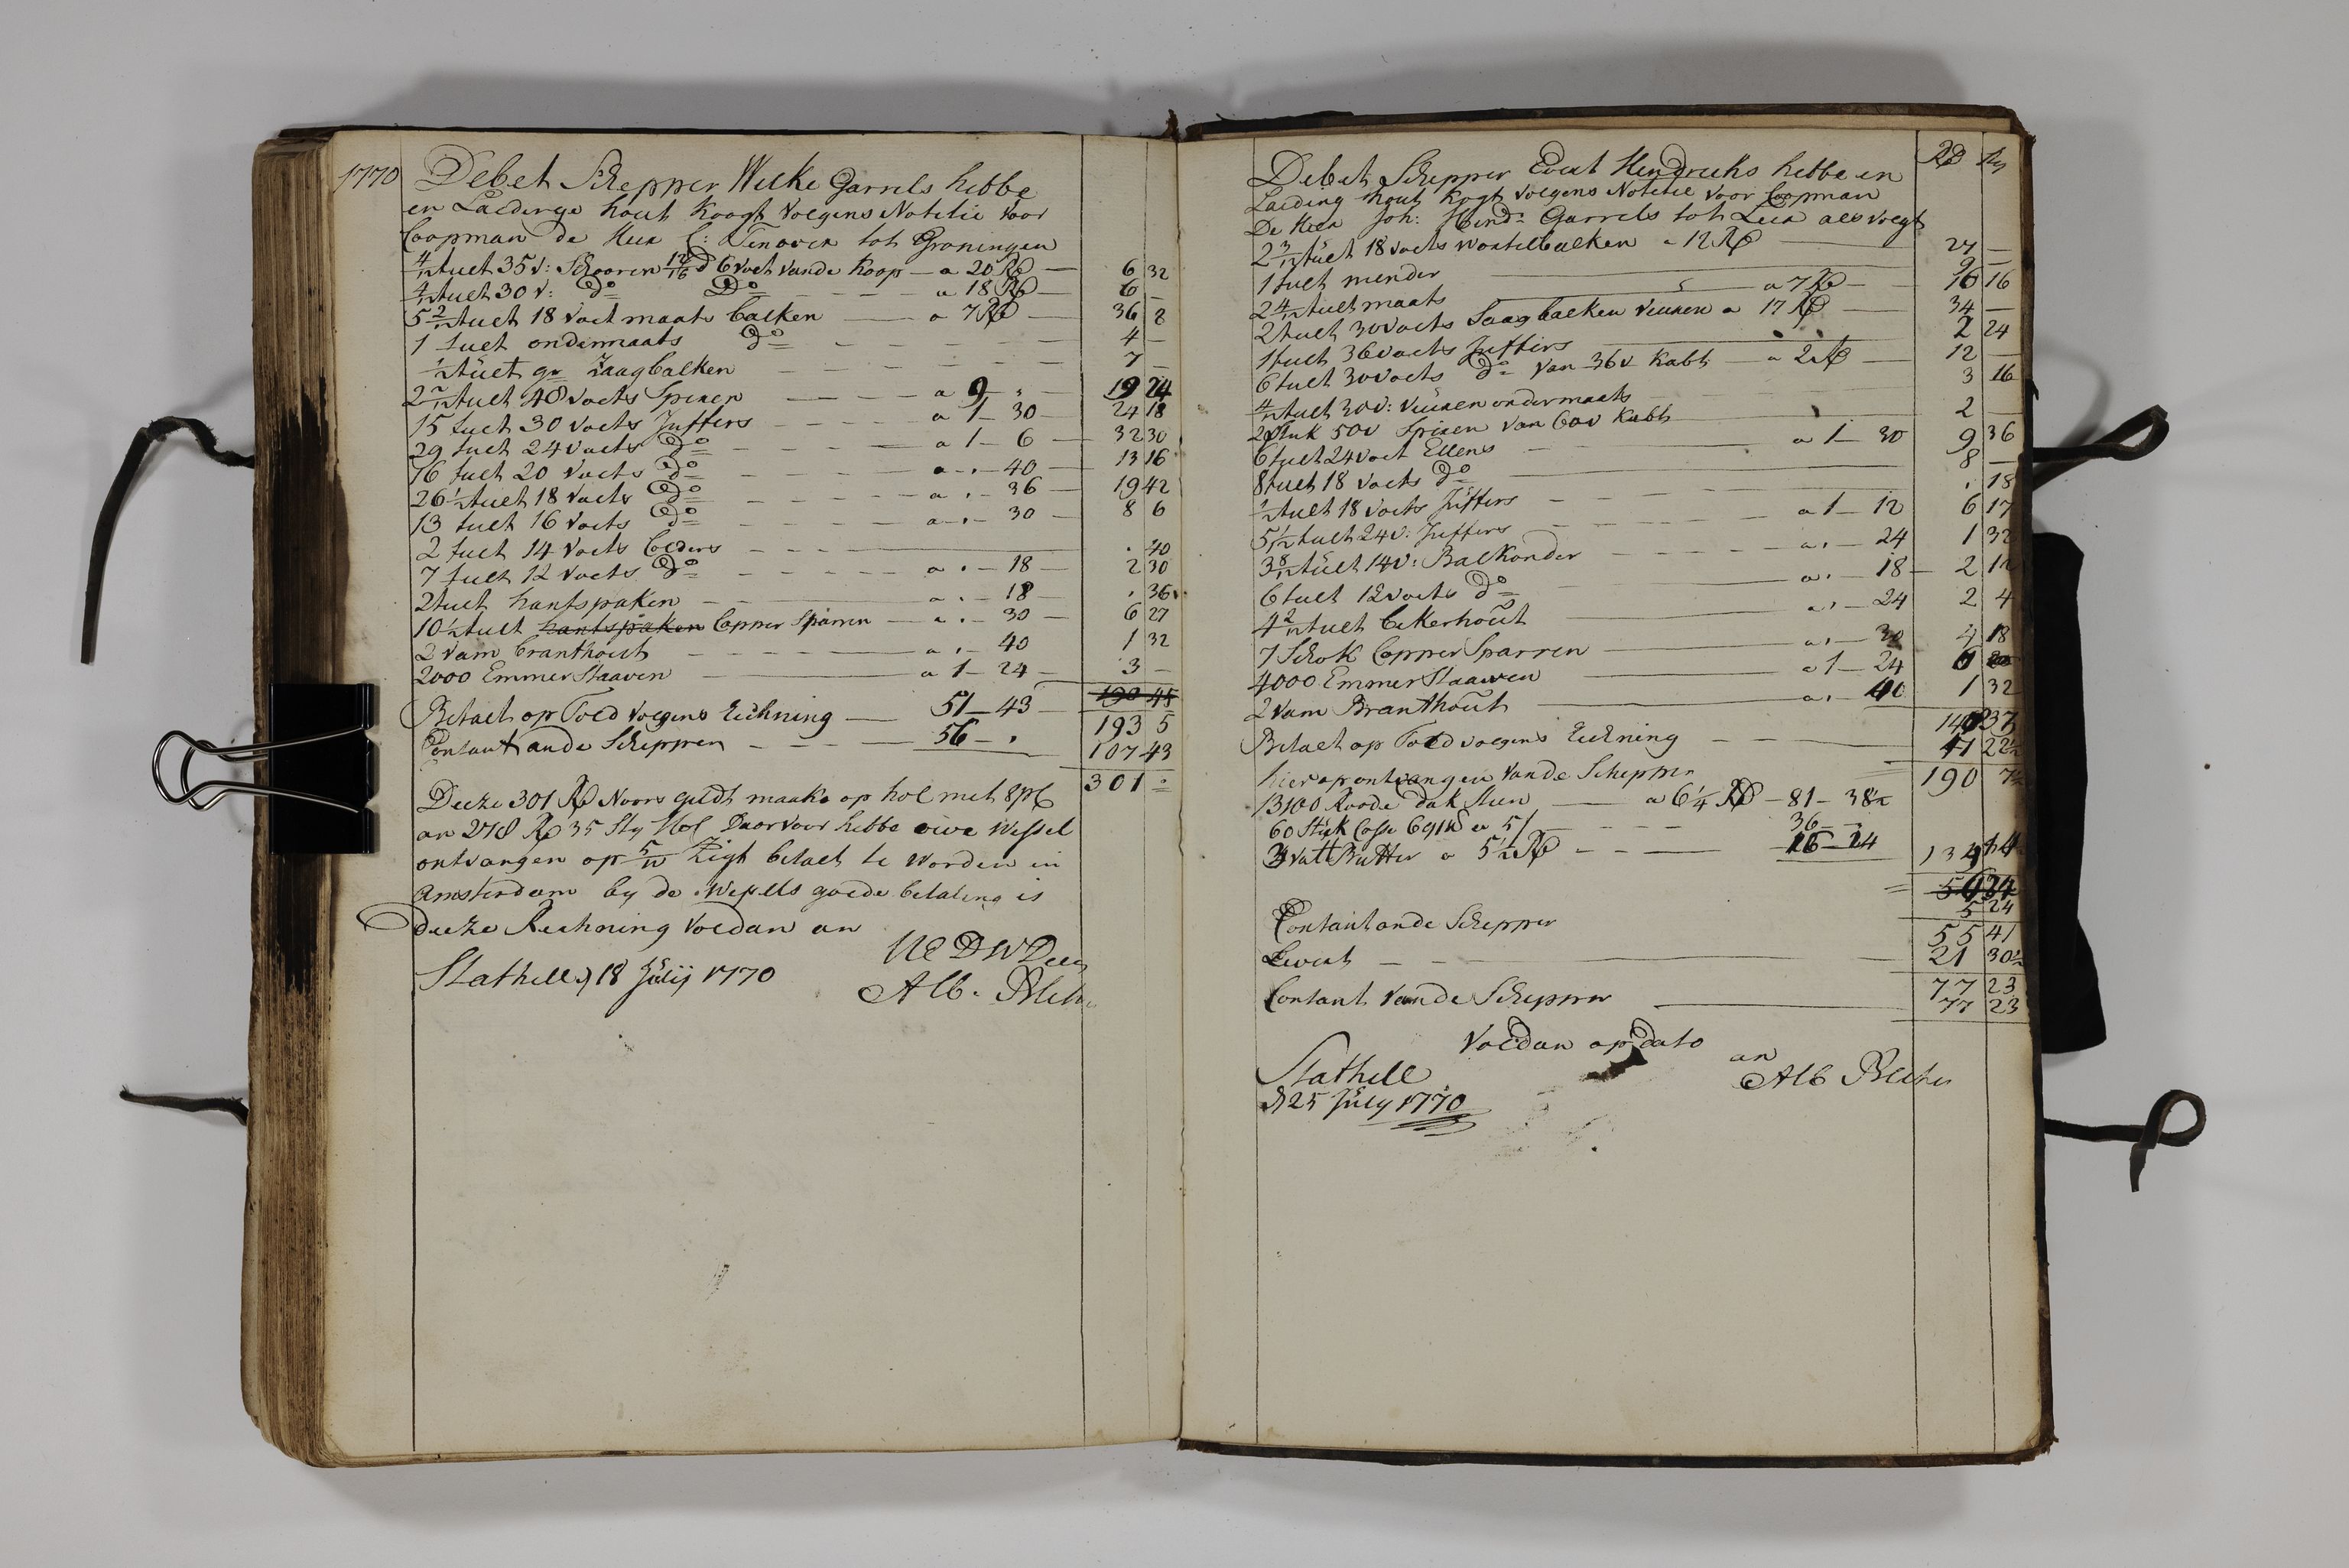 1770 Debet Schepper Wilke Garrels hebbe
en Laedinge hout Koogt volgens Notitie voor
Coopman de Heer C: Tenoever tot Groningen
4/12 tuelt 35 v: Schooren 12/16 d 6 voet vande Koop — a 20 R — 6 32
4/12 tuelt 30 v: do Do — a 18 R — 6 —
5 2/12 tuelt 18 voet maats balken — a 7 R — 36 8
1 tuelt ondermaats do — 4 —
1/2 tuelt gr Zaagbalken — 7 —
2 2/12 tuelt 40 voets Spieren — a 9 " 19 24
15 tuelt 30 voets Juffers a 1 — 30 — 24 18
29 tuelt 24 voets do — a 1 — 6 — 32 30
16 tuelt 20 voets do — a . — 40 — 13 16
26 1/2 tuelt 18 voets do — a . — 36 — 19 42
13 tuelt 16 voets do — a . — 30 — 8 6
2 tuelt 14 voets Colders — . 40
7 tuelt 12 voets do — a . — 18 — 2 30
2 tuelt hantspaken — a . — 18 — . 36
10 1/2 tuelt hantspaken Copper Sparren — a . — 30 — 6 27
2 vam branthout — a . — 40 1 32
2000 Emmer Staaven — a 1 — 24 — 3 —
190 45
Betaelt op Told volgens Reckning — 51 — 43 — 193 5
Contant ande Schepper — 56 — . 107 43
301 =
Deeze 301 R Noors geldt maakt op hol met 8 pC
an 278 R 35 Sty Hol Daar voor hebbe twe Wessel
ontvangen op Zigt betaelt te worden in
Amsterdam by de Wessels goede betaling is
deeze Rechning voldan an
UE DW Dien
Stathelle 18 Julij 1770 Alb. Blehr
RD Sty
Debet Schepper Evert Hendricks hebbe en
Laeding hout kogt volgens Notitie voor Coopman
De Heer Joh: Hind: Garrels tot Leer als volgt
2 3/12 tuelt 18 voets wontelbalken a 12 R — 27 —
1 tuelt minder — 9
2 4/12 tuelt maats — a 7 R — 16 16
2 tuelt 30 voets Saagbalken vieuren a 17 R — 34 —
1 tuelt 36 voets Juffers — 2 24
6 tuelt 30 voets do van 36 v Kabt a 2 R — 12 —
4/12 tuelt 30 v: vieuren ondermaats 3 16
2 Stuk 50 v Spieren van 60 v Kabt 2 —
6 tuelt 24 voet Ellens — a 1 — 30 9 36
8 tuelt 18 voets do — 8 —
1/2 tuelt 18 voets Juffers — . 18
5 1/2 tuelt 24 v: Juffers — a 1 — 12 6 17
3 8/12 tuelt 14 v: Balkonder — a . — 24 1 32
6 tuelt 12 voets do — a . — 18 — 2 12
4 2/12 tuelt bekerhout — a . — 24 2 4
7 Schok Copper Sparren — a . — 30 4 18
4000 Emmer Staaven — a 1 — 24 6
2 vam Branthout — a . — 40 1 32
148 37
Betaelt op Told volgens Reckning — 41 22 1/2
190 7 1/2
hier op ontvangen vande Schepper
13100 Roode dak steen — a 6 1/4 R — 81 — 38 1/2
60 Stuk — 36 —
3 vatt Butter a 5 1/2 R — 16 — 24 134 14
5 24
Contant ande Schepper 55 41
Levert — 21 30 1/2
77 23
Contant vande Schepper — 77 23
Voldan op dato
Stathelle an
d 25 July 1770 Alb Blehr